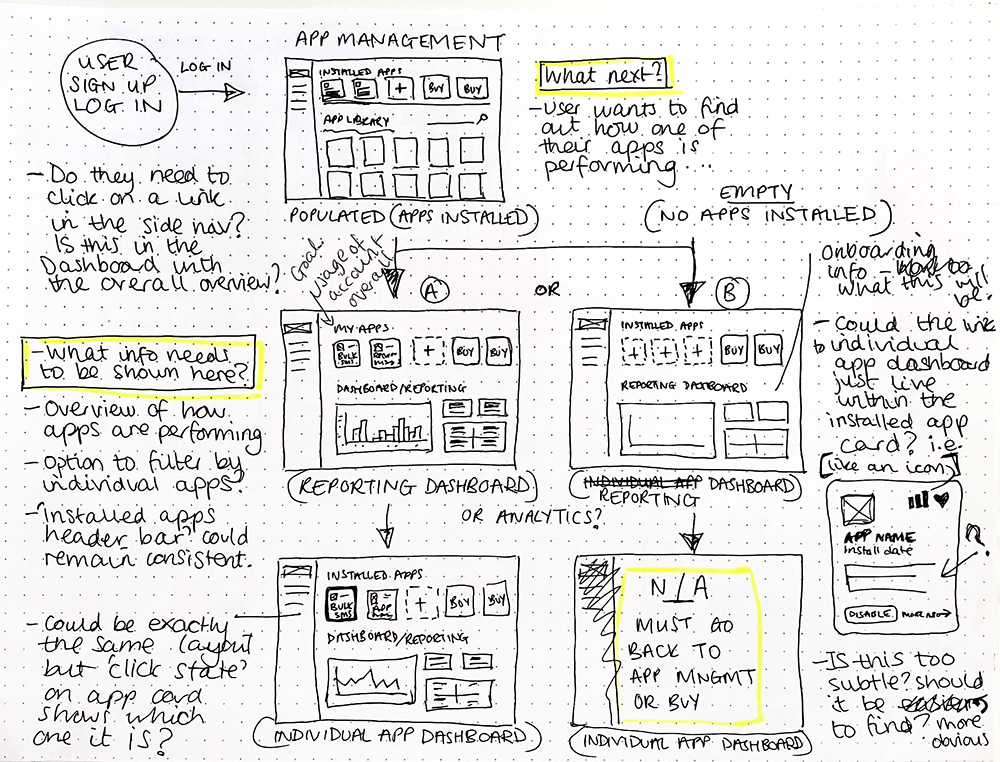 USER
SIGN UP
LOG IN
LOG IN
APP MANAGEMENT
INSTALLED APPS
+
BUY
BUY
APP LIBRARY
POPULATED (APPS INSTALLED)
What next?
- User wants to find
out how one of
their apps is
performing....
EMPTY
(NO APPS INSTALLED)
- Do they need to
click on a link
in the side nav?
Is this in the
Dashboard with
the overall overview?
Goal:
usage of
account
overall
A
OR
B
onboarding
info -
what this will
be.
MY APPS
BULK
SMS
+
BUY
BUY
DASHBOARD/REPORTING
(REPORTING DASHBOARD)
INSTALLED APPS
+
+
+
BUY
BUY
REPORTING DASHBOARD
(INDIVIDUAL APP DASHBOARD)
REPORTING
- What info needs
to be shown here?
- Overview of how
apps are performing
- Option to filter by
individual apps?
- 'Installed apps
header bar' could
remain consistent.
- Could be exactly
the same layout
but 'click state'
on app card
shows which
one it is?
OR ANALYTICS?
INSTALLED APPS
BULK
SMS
+
BUY
BUY
DASHBOARD/REPORTING
(INDIVIDUAL APP DASHBOARD)
N/A
MUST GO
BACK TO
APP MNGMT
OR BUY
(INDIVIDUAL APP DASHBOARD)
- Could the link
to individual
app dashboard
just live
within the
installed app
card? i.e.
(like an icon)
APP NAME
install date
?
DISABLE
- IS this too
subtle? should
it be
to find? more
obvious